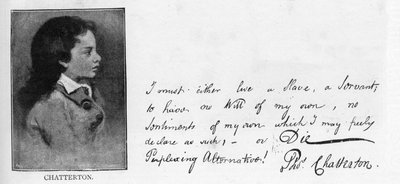 CHATTERTON.
I must either live a Slave, a Servant;
to have no Will of my own, no
Sentiments of my own which I may freely
declare as such; – or Die
Perplexing Alternative!
Thos. Chatterton.